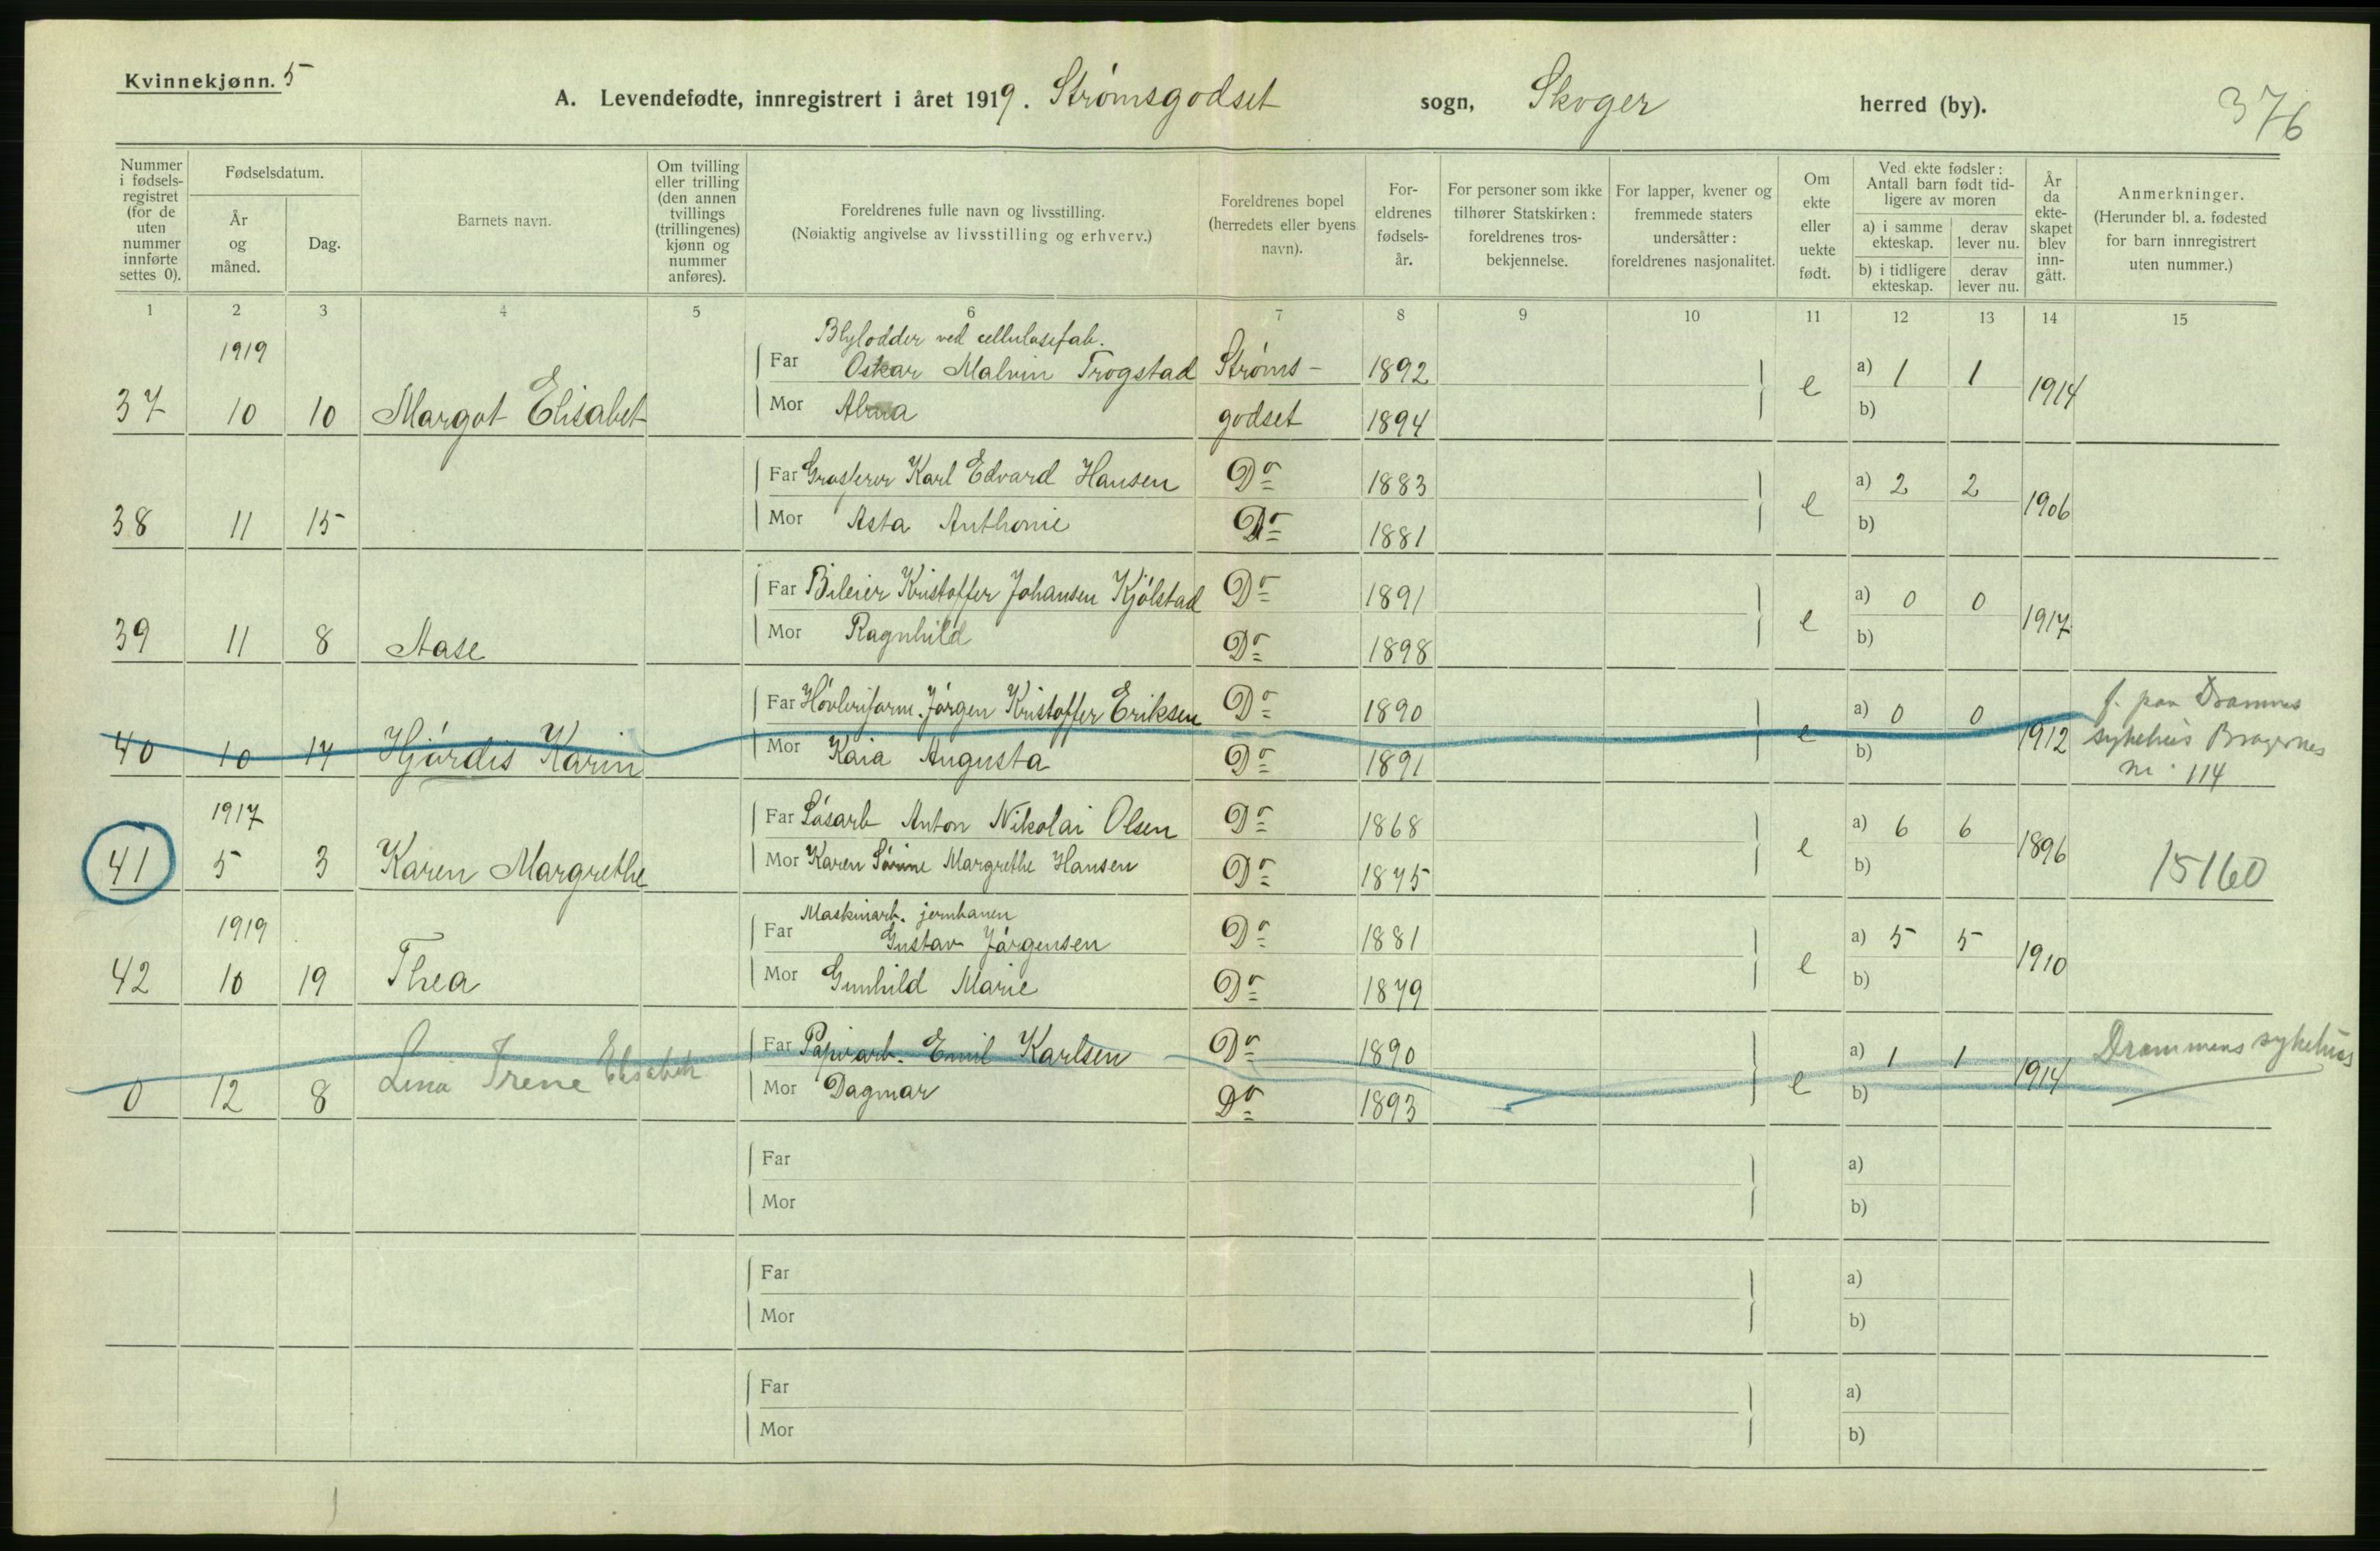 Kvinnekjønn. 5
A. Levendefødte, innregistrert i året 1919. Strømsgodset sogn, Skoger herred (by).
376
Nummer i fødsels-registret (for de uten nummer innførte settes 0).
Fødselsdatum.
År og måned.
Dag.
Barnets navn.
Om tvilling eller trilling (den annen tvillings (trillingenes) kjønn og nummer anføres).
Foreldrenes fulle navn og livsstilling.
(Nøiaktig angivelse av livsstilling og erhverv.)
Foreldrenes bopel (herredets eller byens navn).
For-eldrenes fødsels-år.
For personer som ikke tilhører Statskirken: foreldrenes tros-bekjennelse.
For lapper, kvener og fremmede staters undersåtter: foreldrenes nasjonalitet.
Om ekte eller uekte født.
Ved ekte fødsler: Antall barn født tid-ligere av moren
a) i samme ekteskap.
derav lever nu.
b) i tidligere ekteskap.
derav lever nu.
År da ekte-skapet blev inn-gått.
Anmerkninger.
(Herunder bl. a. fødested for barn innregistrert uten nummer.)
1 2 3 4 5 6 7 8 9 10 11 12 13 14 15
1919 Blylodder ved cellulosefab.
Far Oskar Malvin Trogstad Strøms- 1892 a) 1 1
37 10 10 Margot Elisabet Mor Alma godset 1894 e b) 1914
Far Grosserer Karl Edvard Hansen Do 1883 a) 2 2
38 11 15 Mor Asta Anthonie Do 1881 e b) 1906
Far Bileier Kristoffer Johansen Kjölstad Do 1891 a) 0 0
39 11 8 Aase Mor Ragnhild Do 1898 e b) 1917
Far Høvleriform. Jörgen Kristoffer Eriksen Do 1890 a) 0 0 f. paa Drammens
40 10 17 Hjördis Karin Mor Kaia Augusta Do 1891 e b) 1912 sykehus Bragernes
nr. 114
1917 Far Lösarb Anton Nikolai Olsen Do 1868 a) 6 6
41 5 3 Karen Margrethe Mor Karen Sörine Margrethe Hansen Do 1875 e b) 1896 15160
1919 Maskinarb. jernbanen
Far Gustav Jörgensen Do 1881 a) 5 5
42 10 19 Thea Mor Gunhild Marie Do 1879 e b) 1910
Far Papirarb. Emil Karlsen Do 1890 a) 1 1 Drammens sykehus
0 12 8 Lina Irene Elisabeth Mor Dagmar Do 1893 e b) 1914
Far a)
Mor b)
Far a)
Mor b)
Far a)
Mor b)